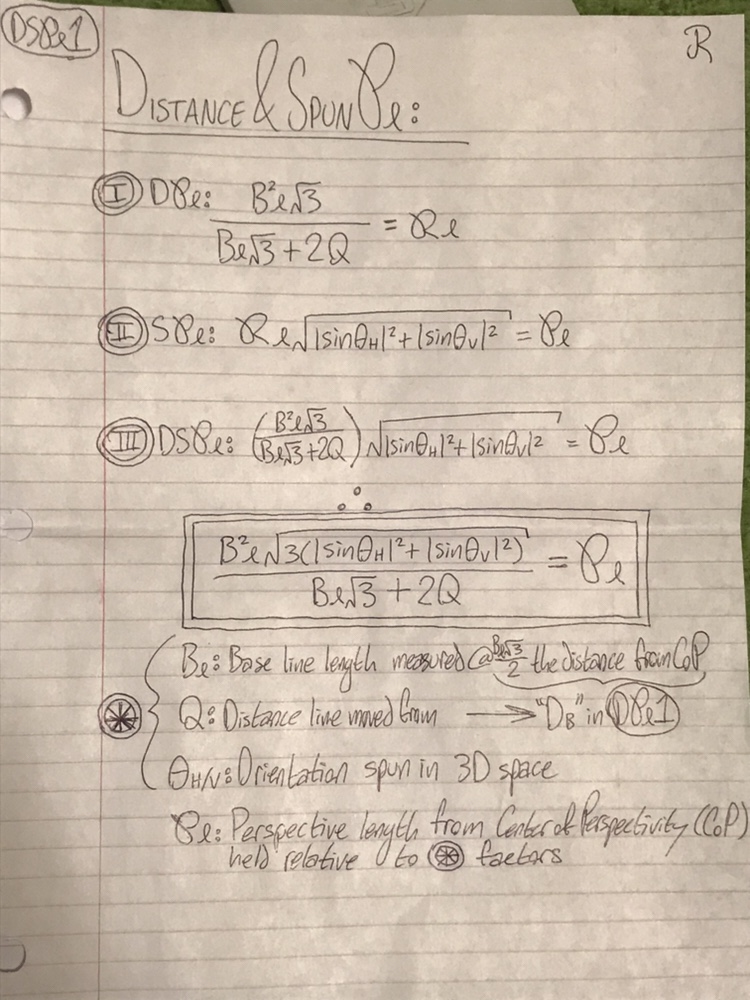 DSPl1
R
DISTANCE & SPUN Pl:
I DPl: B²l√3 / (Bl√3 + 2Q) = Rl
II SPl: Rl√(|sinθH|² + |sinθV|²) = Pl
III DSPl: (B²l√3 / (Bl√3 + 2Q)) √(|sinθH|² + |sinθV|²) = Pl
∴
B²l√(3(|sinθH|² + |sinθV|²)) / (Bl√3 + 2Q) = Pl
Bl: Base line length measured @ Bl√3/2 the distance from CoP
Q: Distance line moved from → "DB" in DPl1
θH/V: Orientation spun in 3D space
Pl: Perspective length from Center of Perspectivity (CoP)
held relative to ⊛ factors